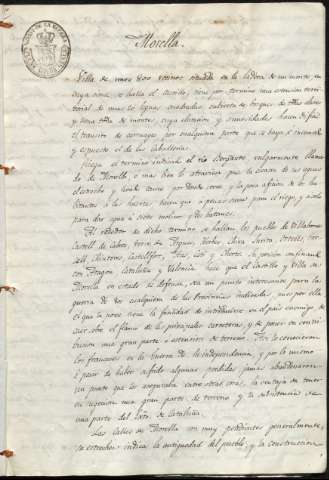 Morella.
Villa de unos 800 vecinos situada en la ladera de un monte, en
cuya cima se halla el Castillo, tiene por termino una estension territo-
rial de unas leguas cuadradas, cubierta de bosques de
y otra de montes, cuya elevacion y escabrosidades hacen dificil
el transito de carruages por cualquiera parte que se vaya á escasos
y espuesto el de las caballerias.
Riega el termino indicado el rio Bergantes vulgarmente llama-
do de Morella, ó mas bien lo atraviesa, pues la escasez de sus aguas
el estrecho y hondo cauce por donde corre y la poca aficion de los ha-
bitantes á las huertas, hacen que apenas sirva para el riego, y solo
para dar agua á siete molinos y dos batanes.
Al rededor de dicho termino se hallan los pueblos de Villabona
Castell de Cabres, torre de Arques, Herbes, Chiva, Zurita, Ortells,
Cinctorres, Castellfort, Ares, Vall y Portell. Su posicion confinante
con Aragon, Cataluña y Valencia, hace que el Castillo y Villa de
Morella en estado de defensa, sea un punto interesante para la
guerra de las provincias indicadas, pues por ella
el que la posee tiene la facilidad de introducirse en el pais enemigo, de
caer sobre el flanco de las principales carreteras, y de poner en contri-
bucion una gran parte ó estension de terreno. Asi lo conocieron
los franceses en la guerra de la independencia, y por lo mismo
á pesar de haber sufrido algunas perdidas jamas abandonaron
un punto que les aseguraba entre otras cosas, la ventaja de tener
en sugecion una gran parte de terreno y la subsistencia de
una parte del de Cataluña.
Las calles de Morella son muy pendientes generalmente,
su estrechez indica la antiguedad del pueblo, y la construccion